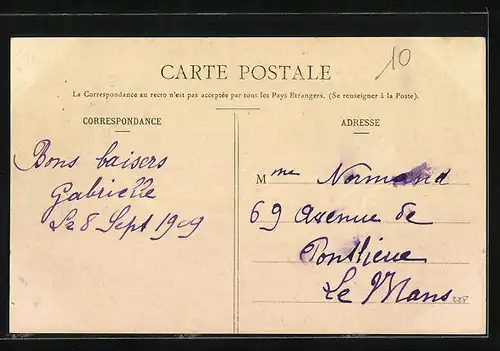 10
CARTE POSTALE
La Correspondance au recto n'est pas acceptée par tous les Pays Etrangers. (Se renseigner à la Poste).
CORRESPONDANCE
ADRESSE
Bons baisers
Gabrielle
Le 8 Sept 1909
Mme Normand
69 Avenue de
Pontlieue
Le Mans
228